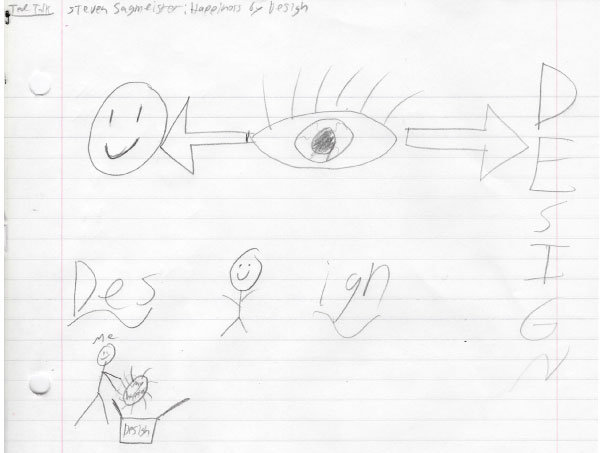 Ted Talk
Steven Sagmeister: Happiness by Design
DESIGN
Des ign
Me
Design